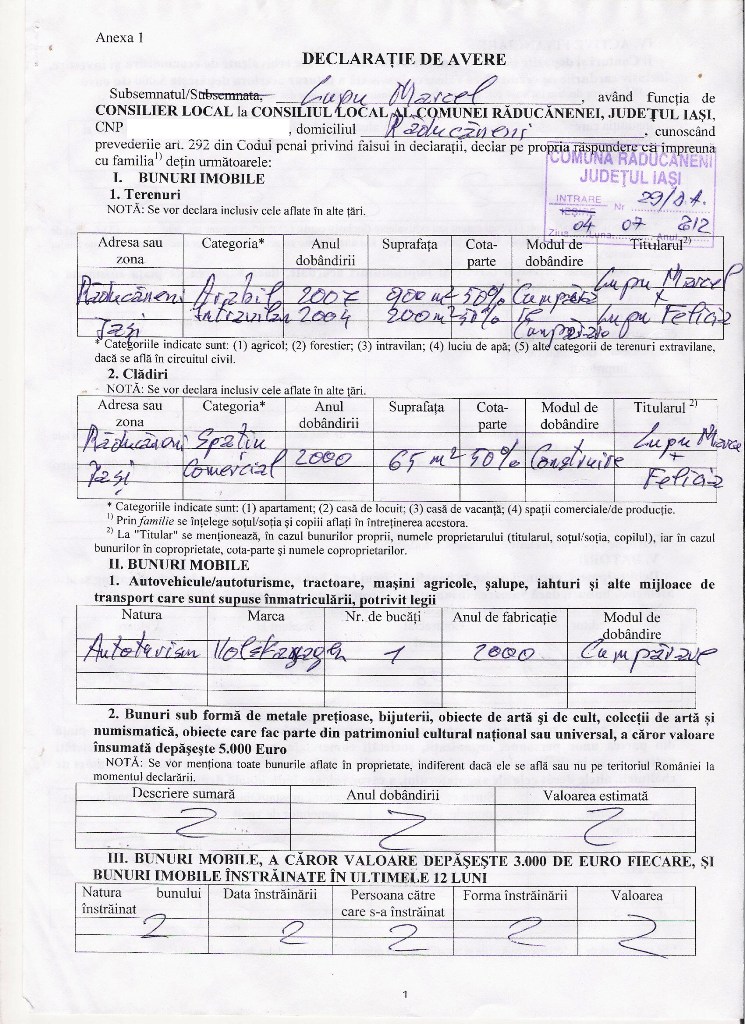 Anexa 1
DECLARAȚIE DE AVERE
Subsemnatul/Subsemnata, Lupu Marcel, având funcția de
CONSILIER LOCAL la CONSILIUL LOCAL AL COMUNEI RĂDUCĂNENEI, JUDEȚUL IAȘI,
CNP , domiciliul Răducăneni, cunoscând
prevederile art. 292 din Codul penal privind falsul în declarații, declar pe propria răspundere că împreuna
cu familia1) dețin următoarele:
COMUNA RĂDUCĂNENI
JUDEȚUL IAȘI
INTRARE Nr 29/D.A.
IEȘIRE
Ziua 04 Luna 07 Anul 212
I. BUNURI IMOBILE
1. Terenuri
NOTĂ: Se vor declara inclusiv cele aflate în alte țări.
Adresa sau zona Categoria* Anul dobândirii Suprafața Cota-parte Modul de dobândire Titularul2)
Răducăneni Arabil 2007 m2 50% Lupu Marcel
+
Iași Intravilan 2004 200 m2 50% Cumpărare Lupu Felicia
* Categoriile indicate sunt: (1) agricol; (2) forestier; (3) intravilan; (4) luciu de apă; (5) alte categorii de terenuri extravilane,
dacă se află în circuitul civil.
2. Clădiri
NOTĂ: Se vor declara inclusiv cele aflate în alte țări.
Adresa sau zona Categoria* Anul dobândirii Suprafața Cota-parte Modul de dobândire Titularul 2)
Răducăneni Spațiu Lupu Marcel
2000 65 m2 50% Construire +
Iași Comercial Felicia
* Categoriile indicate sunt: (1) apartament; (2) casă de locuit; (3) casă de vacanță; (4) spații comerciale/de producție.
1) Prin familie se înțelege soțul/soția și copiii aflați în întreținerea acestora.
2) La "Titular" se menționează, în cazul bunurilor proprii, numele proprietarului (titularul, soțul/soția, copilul), iar în cazul
bunurilor în coproprietate, cota-parte și numele coproprietarilor.
II. BUNURI MOBILE
1. Autovehicule/autoturisme, tractoare, mașini agricole, șalupe, iahturi și alte mijloace de
transport care sunt supuse înmatriculării, potrivit legii
Natura Marca Nr. de bucăți Anul de fabricație Modul de dobândire
Autoturism 1 2000 Cumpărare
2. Bunuri sub formă de metale prețioase, bijuterii, obiecte de artă și de cult, colecții de artă și
numismatică, obiecte care fac parte din patrimoniul cultural național sau universal, a căror valoare
însumată depășește 5.000 Euro
NOTĂ: Se vor menționa toate bunurile aflate în proprietate, indiferent dacă ele se află sau nu pe teritoriul României la
momentul declarării.
Descriere sumară Anul dobândirii Valoarea estimată
III. BUNURI MOBILE, A CĂROR VALOARE DEPĂȘEȘTE 3.000 DE EURO FIECARE, ȘI
BUNURI IMOBILE ÎNSTRĂINATE ÎN ULTIMELE 12 LUNI
Natura bunului înstrăinat Data înstrăinării Persoana către care s-a înstrăinat Forma înstrăinării Valoarea
1